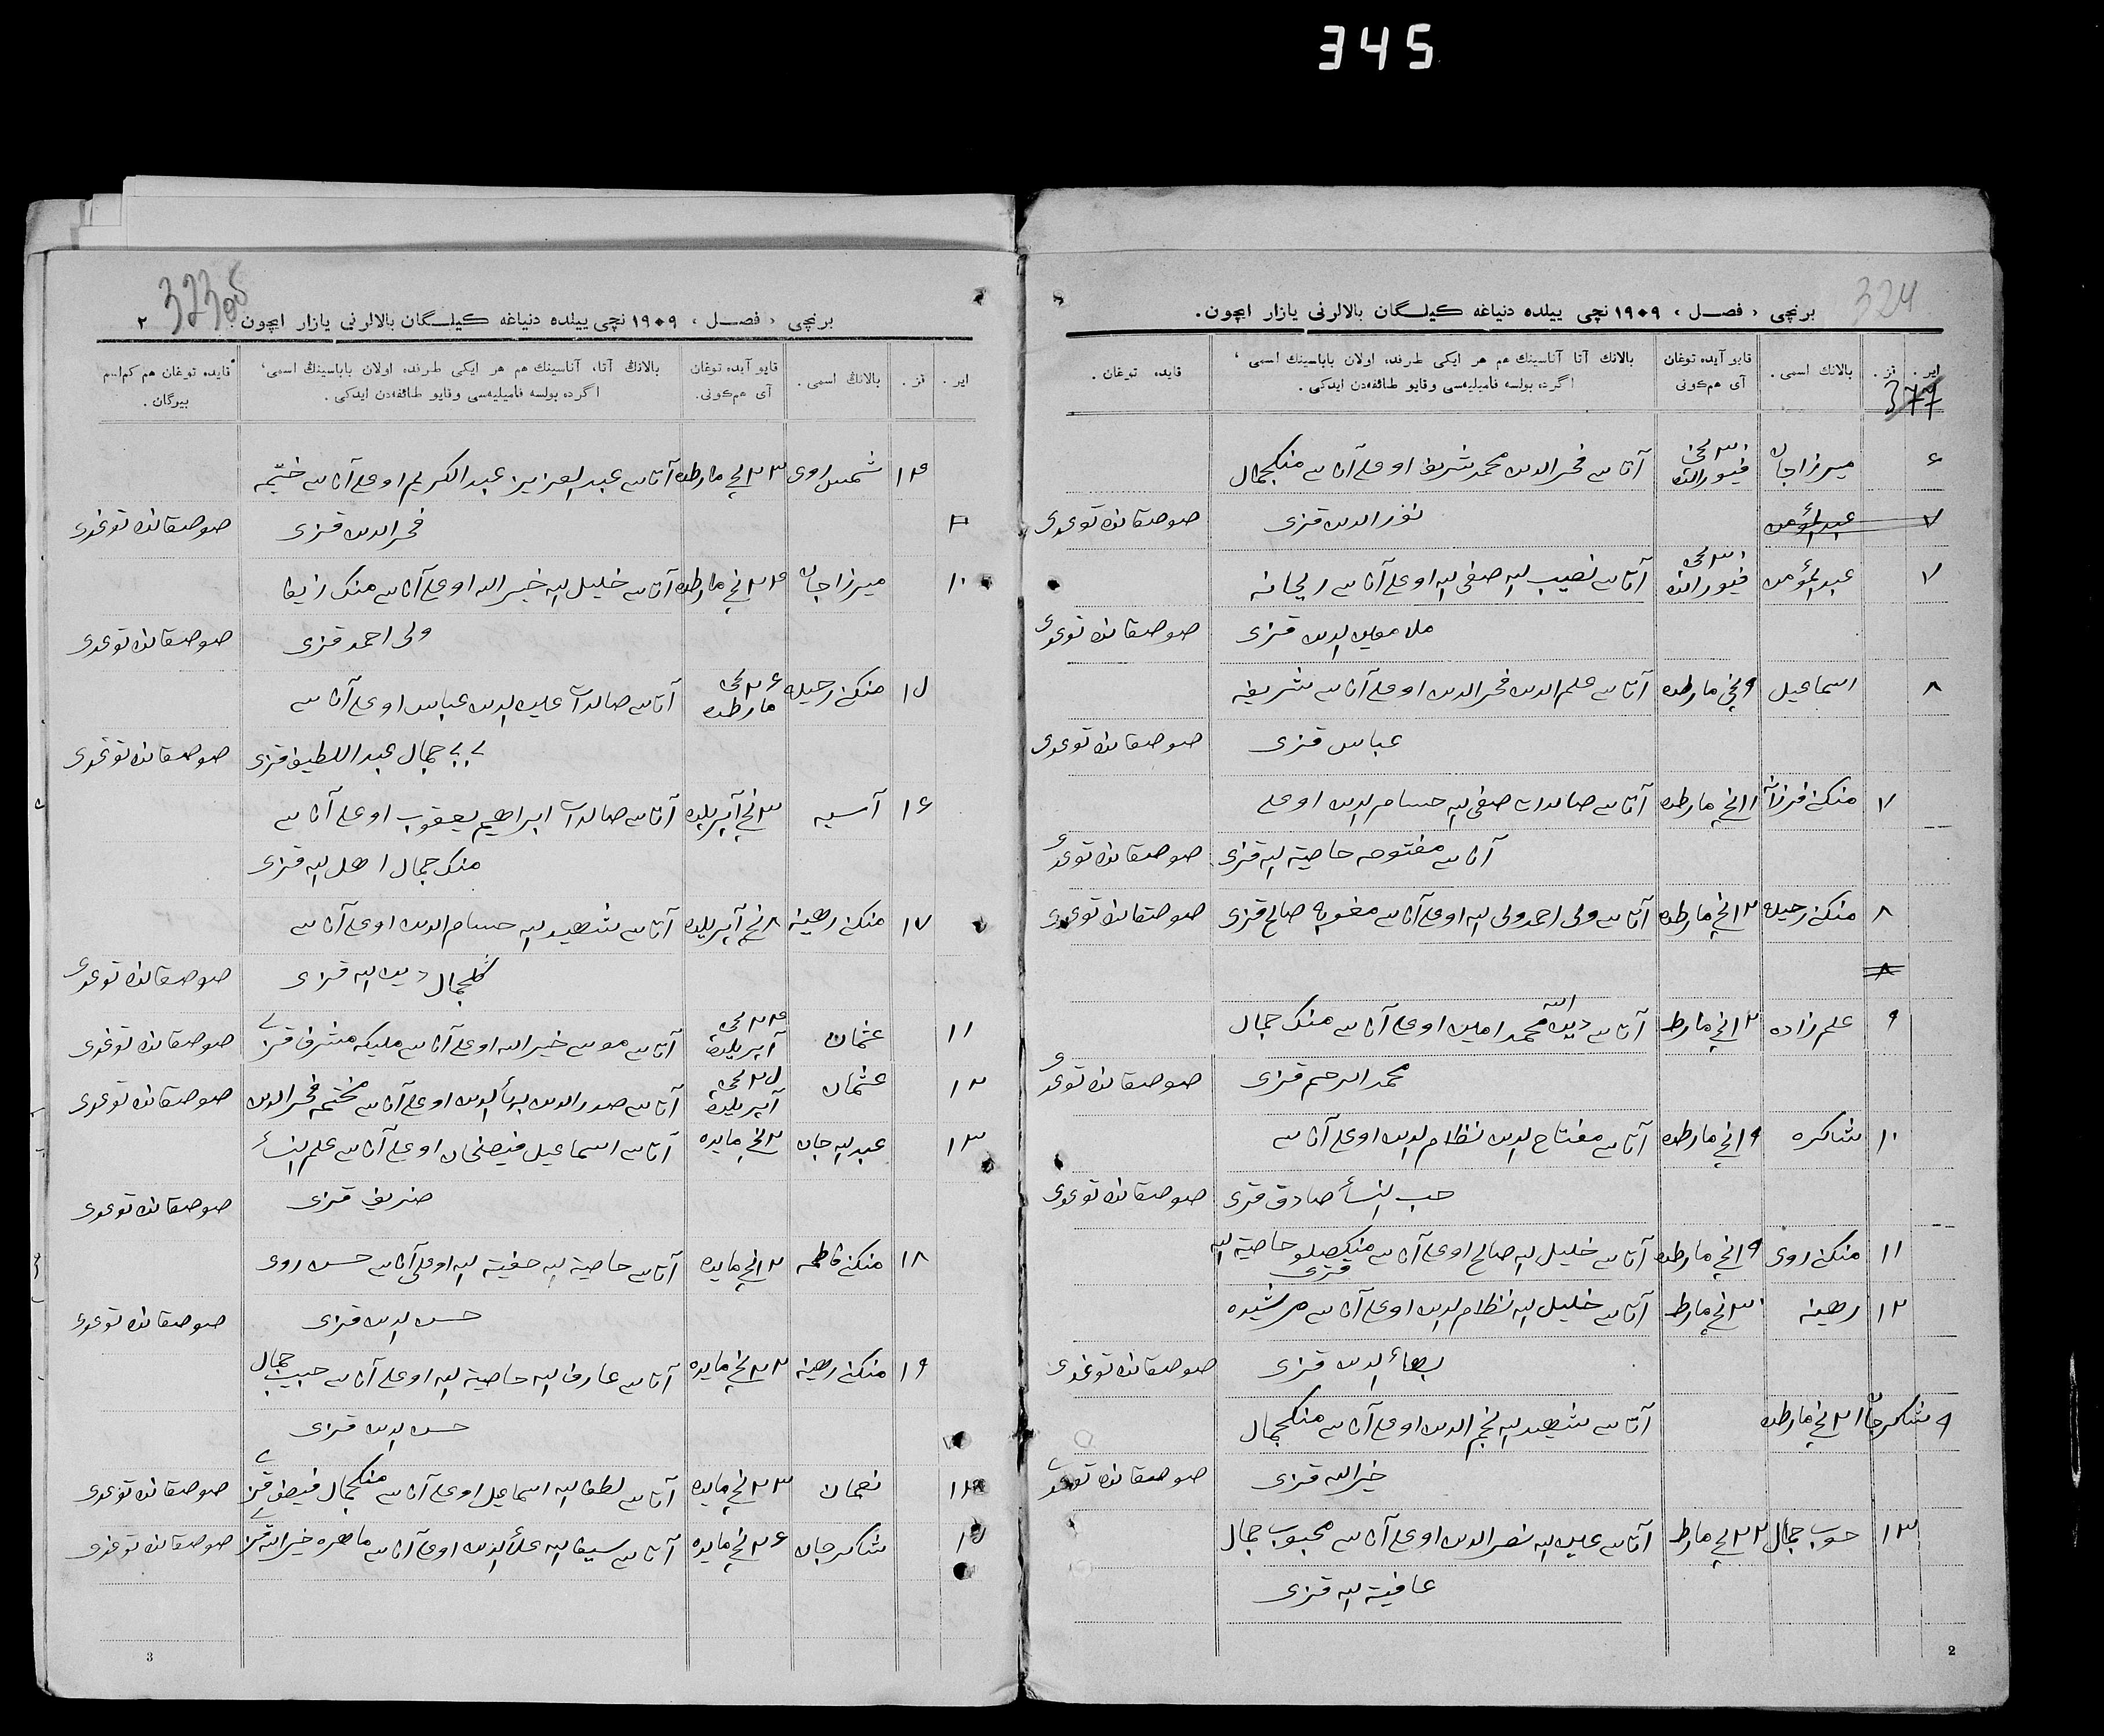 345
324
برنچی ، فصل ، ١٩٠٩ نچی ییلده دنیاغه کیلگان بالالرنی یازار ایچون .
ایر . قز . بالانك اسمی . قایو آیده توغان آی هم کونی بالانك آتا آناسینك هم هر ایکی طرفده اولان باباسینك اسمی ، قایده توغان .
اگرده بولسه فامیلیه‌سی و قایو طائفه‌دن ایدکی .
377
۶ میرزا جان ٣٠ نچی فیورالده آتاسی فخرالدین محمد شریف اوغلی آناسی منکجمال
٧ عبدالمؤمن نورالدین قزی صوصقانده توغدی
٧ عبدالمؤمن ٣٠ نچی فیورالده آتاسی نصیب الله صفی الله اوغلی آناسی ریحانه
ملا معین الدین قزی صوصقانده توغدی
٨ اسماعیل ٩ نچی مارطده آتاسی علم الدین فخرالدین اوغلی آناسی شریفه
عباس قزی صوصقانده توغدی
٧ ١١ نچی مارطده آتاسی صالدات صفی الله حسام الدین اوغلی
آناسی مفتوحه حاصیة الله قزی صوصقانده توغدی
٨ ١٢ نچی مارطده آتاسی ولی احمد ولی الله اوغلی آناسی صالح قزی صوصقانده توغدی
٨
٩ علم زاده ١٢ نچی مارط آتاسی دین الله محمد امین اوغلی آناسی منک جمال
محمد الرحیم قزی صوصقانده توغدی
١٠ شاکره ١٩ نچی مارطده آتاسی مفتاح الدین نظام الدین اوغلی آناسی
حب النساء صادق قزی صوصقانده توغدی
١١ منکنی روی ١٩ نچی مارطده آتاسی خلیل الله صالح اوغلی آناسی منیکصلو حاصیة الله قزی
١٢ رهینه ٣٠ نچی مارط آتاسی خلیل الله نظام الدین اوغلی آناسی مرشیده
بهاء الدین قزی صوصقانده توغدی
٩ شاکر جان ٢١ نچی مارطده آتاسی شهید الله نجم الدین اوغلی آناسی منکجمال
خیرالله قزی صوصقانده توغدی
١٣ حوب جمال ٢٢ نچی مارط آتاسی عین الله نصرالدین اوغلی آناسی محبوب جمال
عافیة الله قزی
2
323
برنچی ، فصل ، ١٩٠٩ نچی ییلده دنیاغه کیلگان بالالرنی یازار ایچون . ٢
ایر . قز . بالانڭ اسمی . قایو آیده توغان آی هم کونی . بالانڭ آتا، آناسینك هم هر ایکی طرفده اولان باباسینڭ اسمی، قایده توغان هم کم اسم بیرگان .
اگرده بولسه فامیلیه‌سی و قایو طائفه‌دن ایدکی .
١۴ شمس روی ٢٣ نچی مارطده آتاسی عبد العزیز عبد الکریم اوغلی آناسی ختیمه
فخرالدین قزی صوصقانده توغدی
١٠ میرزا جان ٢۴ نچی مارطده آتاسی خلیل الله خیرالله اوغلی آناسی منک زیفا
ولی احمد قزی صوصقانده توغدی
١۵ منکنی رحیله ٢۶ نچی مارطده آتاسی صالدات عین الدین عباس اوغلی آناسی
بی بی جمال عبد اللطیف قزی صوصقانده توغدی
١۶ آسیه ٣ نچی آپریلده آتاسی صالدات ابراهیم یعقوب اوغلی آناسی
منک جمال اهل الله قزی
١٧ منکنی رهینه ٨ نچی آپریلده آتاسی شهید الله حسام الدین اوغلی آناسی
گلجمال دین الله قزی صوصقانده توغدی
١١ عثمان ٢۴ نچی آپریلده آتاسی موسی خیرالله اوغلی آناسی ملیکه مشرف قزی صوصقانده توغدی
١٢ عثمان ٢۵ نچی آپریلده آتاسی صدرالدین بهاء الدین اوغلی آناسی مختیمه فخرالدین صوصقانده توغدی
١٣ عبدالله جان ٢ نچی مایده آتاسی اسماعیل فیضخان اوغلی آناسی علم النساء
ضریف قزی صوصقانده توغدی
١٨ منکنی فاطمه ١٢ نچی مایده آتاسی حاصیة الله حفیة الله اوغلی آناسی حسن روی
حسن الدین قزی صوصقانده توغدی
١٩ منکنی رهینه ٢٢ نچی مایده آتاسی عارف الله حاصیة الله اوغلی آناسی حبیب جمال
حسن الدین قزی
١۴ نعمان ٢٣ نچی مایده آتاسی لطف الله اسماعیل اوغلی آناسی منکجمال فیضی قزی صوصقانده توغدی
١۵ شاکر جان ٢۶ نچی مایده آتاسی سیف الله علاء الدین اوغلی آناسی ماهره خیرالله قزی صوصقانده توغدی
3